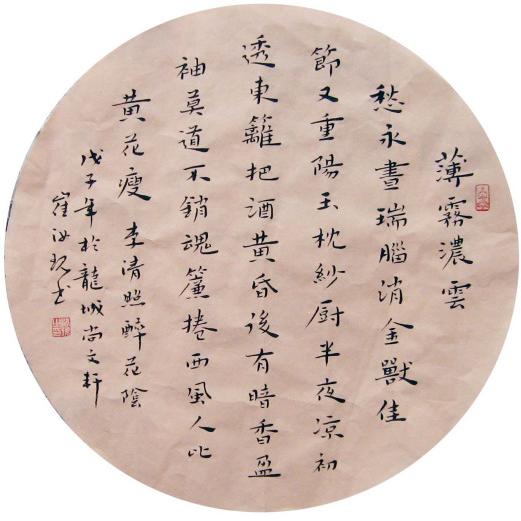 薄霧濃雲
愁永晝瑞腦消金獸佳
節又重陽玉枕紗厨半夜凉初
透東籬把酒黄昏後有暗香盈
袖莫道不銷魂簾捲西風人比
黄花瘦 李清照醉花陰
戊子年於龍城尚文軒
崔汝 书